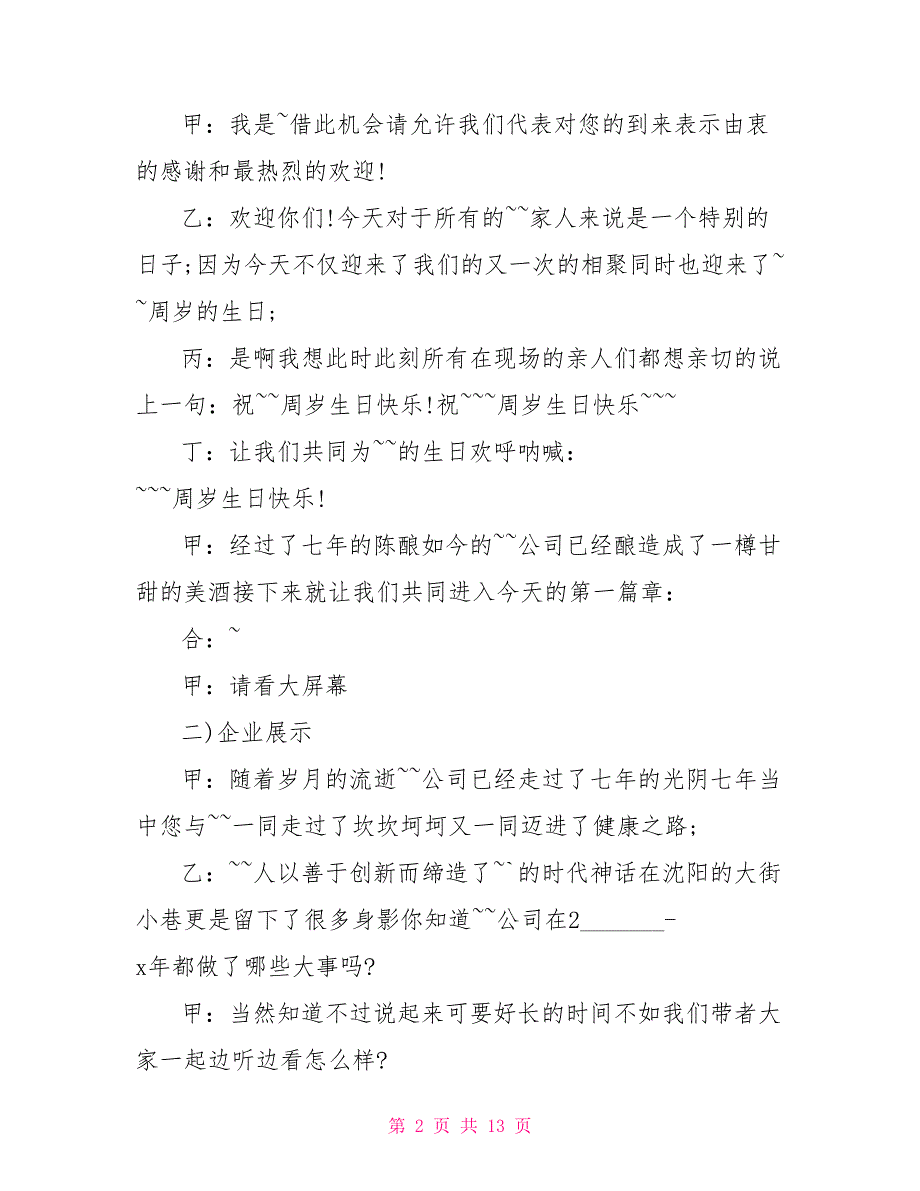 甲：我是~借此机会请允许我们代表对您的到来表示由衷
的感谢和最热烈的欢迎!
乙：欢迎你们!今天对于所有的~~家人来说是一个特别的
日子;因为今天不仅迎来了我们的又一次的相聚同时也迎来了~
~周岁的生日;
丙：是啊我想此时此刻所有在现场的亲人们都想亲切的说
上一句：祝~~周岁生日快乐!祝~~~周岁生日快乐~~~
丁：让我们共同为~~的生日欢呼呐喊：
~~~周岁生日快乐!
甲：经过了七年的陈酿如今的~~公司已经酿造成了一樽甘
甜的美酒接下来就让我们共同进入今天的第一篇章：
合：~
甲：请看大屏幕
二)企业展示
甲：随着岁月的流逝~~公司已经走过了七年的光阴七年当
中您与~~一同走过了坎坎坷坷又一同迈进了健康之路;
乙：~~人以善于创新而缔造了~`的时代神话在沈阳的大街
小巷更是留下了很多身影你知道~~公司在2_______-
x年都做了哪些大事吗?
甲：当然知道不过说起来可要好长的时间不如我们带者大
家一起边听边看怎么样?
第 2 页 共 13 页